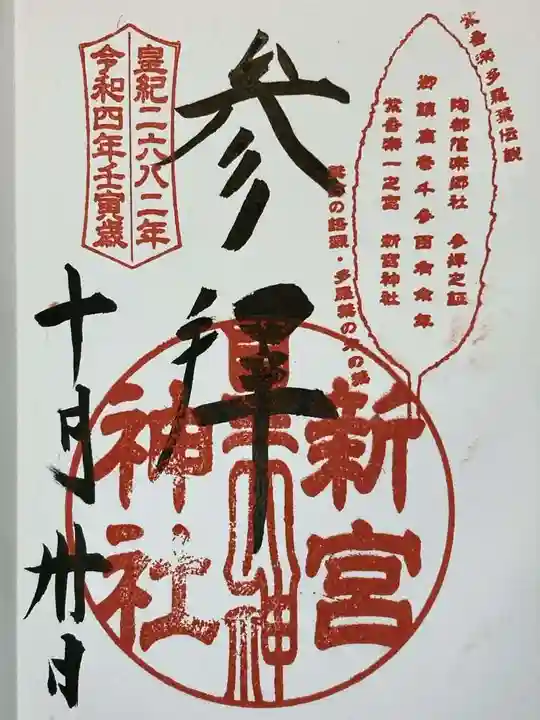 紫香楽多羅葉伝説
陶都信楽郷社 参拝之証
御鎮座壱千参百有余年
紫香楽一之宮 新宮神社
葉書の語源・多羅葉の木の葉
参拝
皇紀二六八二年
令和四年壬寅歳
十月卅日
新宮
神社